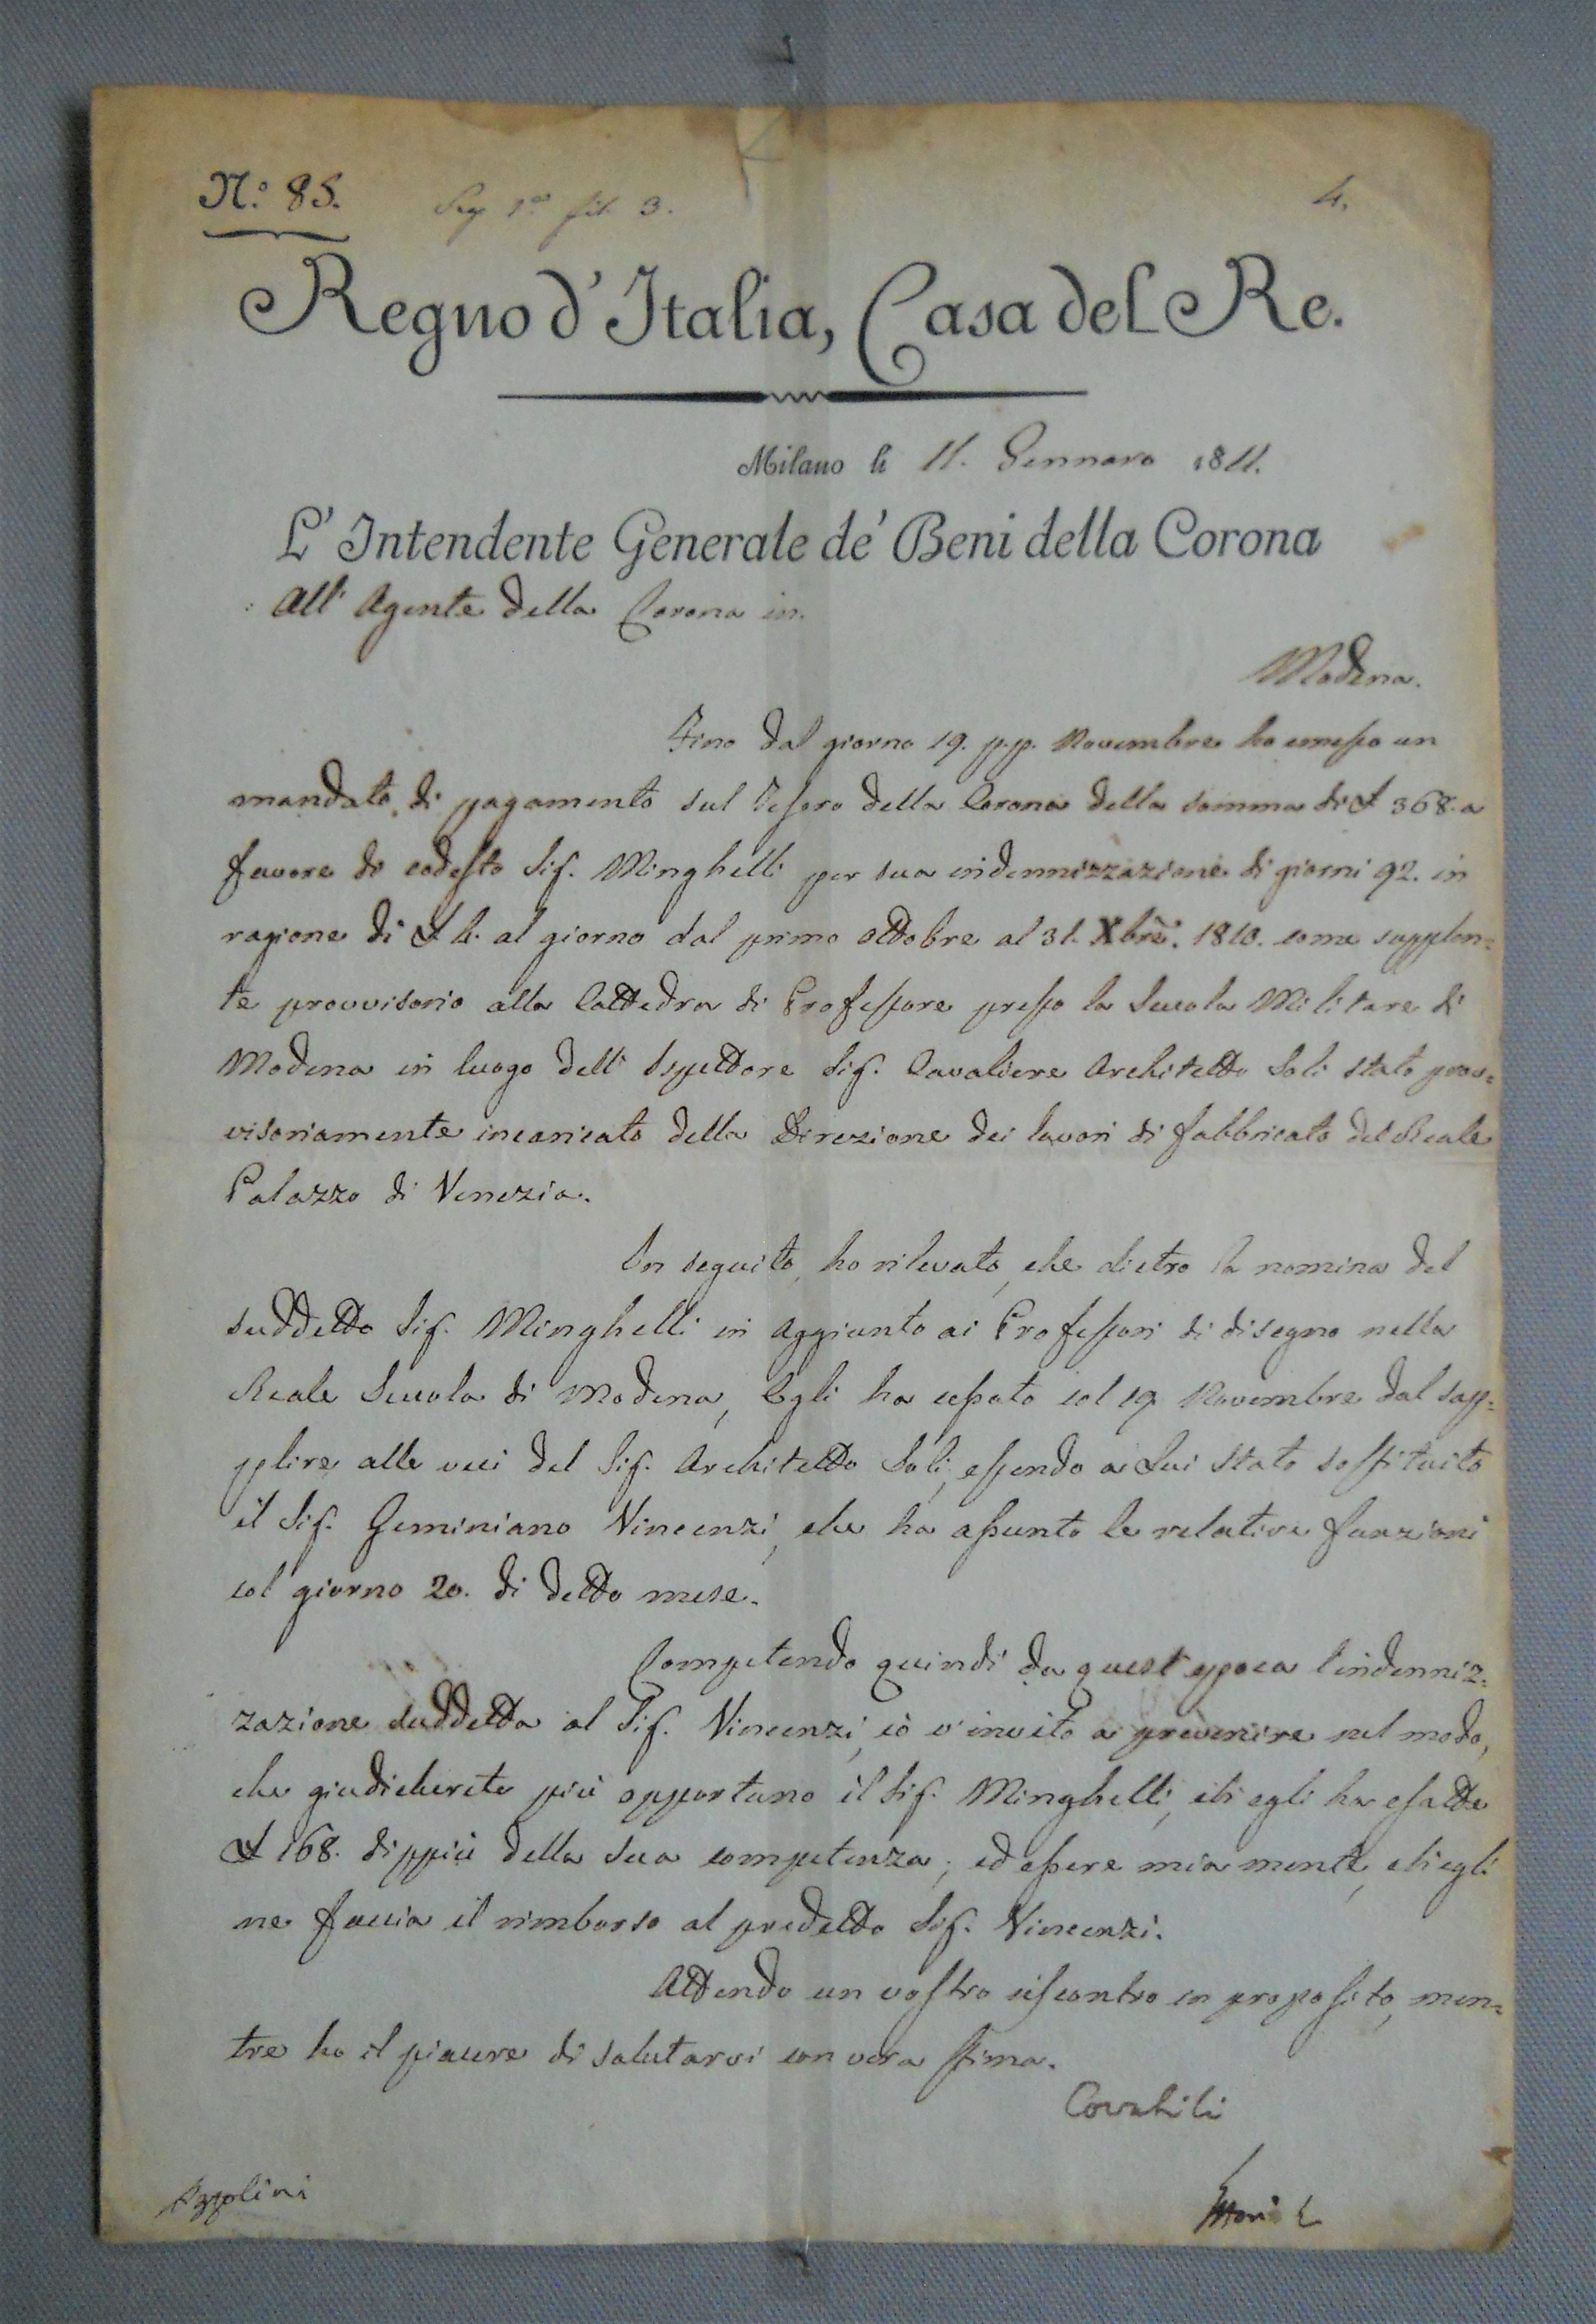 N.º 85.
4.
Regno d'Italia, Casa del Re.
Milano li 11. Gennaro 1811.
L'Intendente Generale de' Beni della Corona
All' Agente della Corona in
Modena.
Fino dal giorno 19. p.p. Novembre ho emesso un
mandato di pagamento sul Tesoro della Corona della somma di £ 368. a
favore di codesto Sig. Minghelli per sua indennizzazione di giorni 92. in
ragione di £ 4. al giorno dal primo Ottobre al 31. Xbre. 1810. come supplen=
te provvisorio alla Cattedra di Professore presso la Scuola Militare di
Modena in luogo dell' Ispettore Sig. Cavaliere Architetto Soli stato prov=
visoriamente incaricato della Direzione dei lavori di fabbricato del Reale
Palazzo di Venezia.
In seguito, ho rilevato, che dietro la nomina del
suddetto Sig. Minghelli in Aggiunto ai Professori di disegno nella
Reale Scuola di Modena, Egli ha cessato col 19 Novembre dal sup=
plire alle veci del Sig. Architetto Soli, essendo a Lui stato sostituito
il Sig. Geminiano Vincenzi, che ha assunto le relative funzioni
col giorno 20. di detto mese.
Competendo quindi da quest'epoca l'indenniz=
zazione suddetta al Sig. Vincenzi, io v'invito a prevenire nel modo,
che giudicherete più opportuno il Sig. Minghelli, ch'egli ha esatte
£ 168. dippiù della sua competenza, ed essere mia mente, ch'egli
ne faccia il rimborso al predetto Sig. Vincenzi.
Attendo un vostro riscontro in proposito, men=
tre ho il piacere di salutarvi con vera stima.